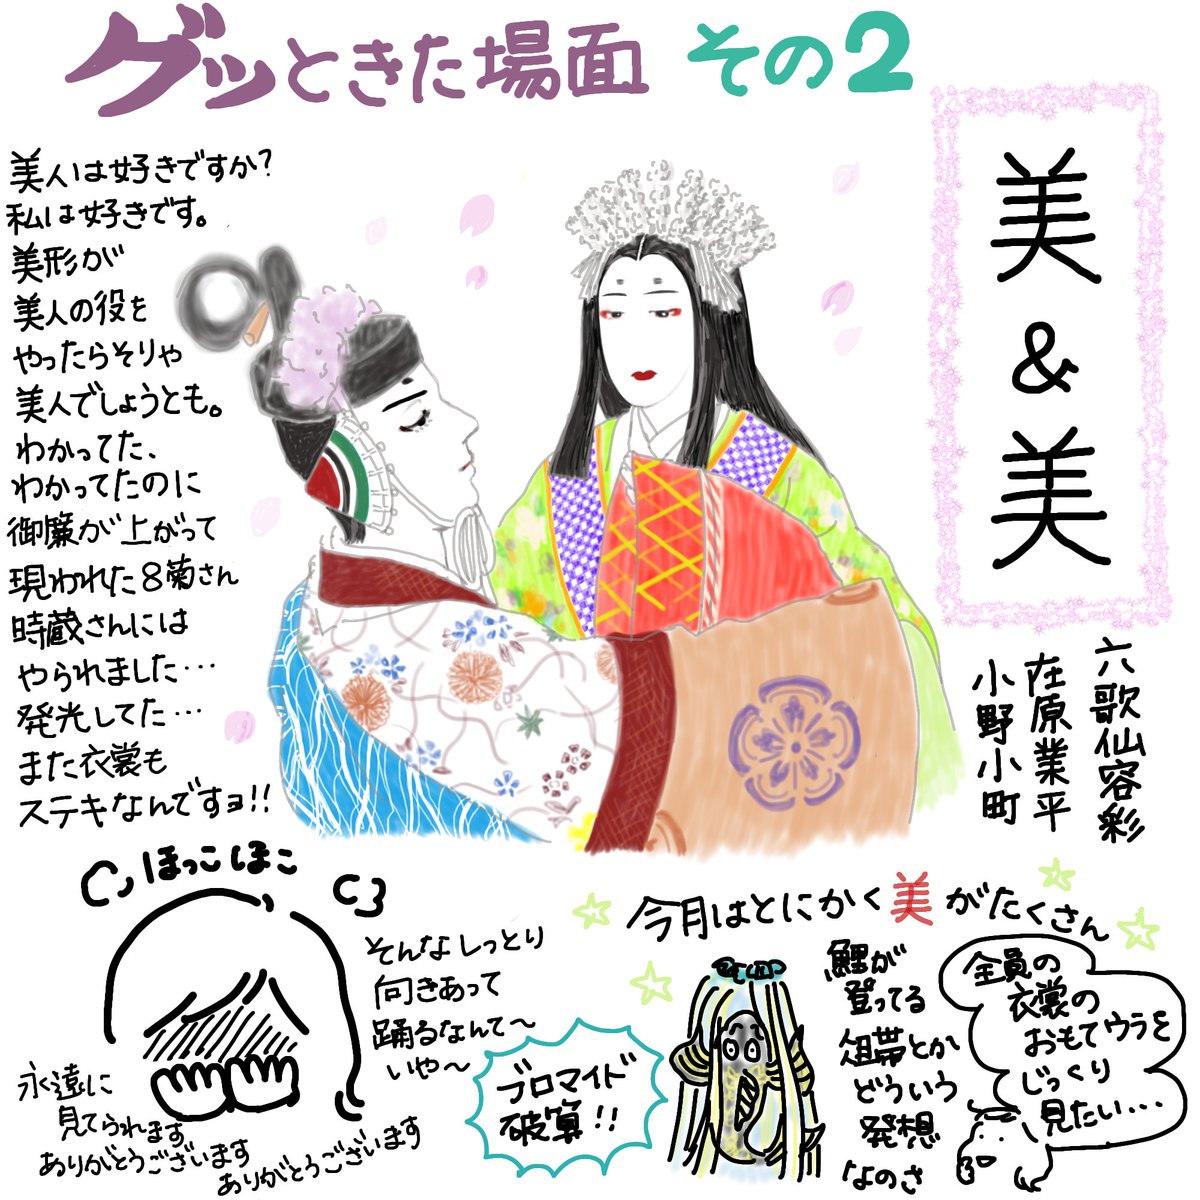 グッときた場面 その2
美&美
六歌仙容彩
在原業平
小野小町
美人は好きですか?
私は好きです。
美形が
美人の役を
やったらそりゃ
美人でしょうとも。
わかってた、
わかってたのに
御簾が上がって
現われた8菊さん
時蔵さんには
やられました…
発光してた…
また衣裳も
ステキなんですョ!!
ほっこほこ
そんなしっとり
向きあって
踊るなんて〜
いや〜
永遠に
見てられます
ありがとうございます
ありがとうございます
今月はとにかく美がたくさん
ブロマイド
破算!!
鯉が
登ってる
俎帯とか
どういう
発想
なのさ
全員の
衣裳の
おもてウラを
じっくり
見たい…